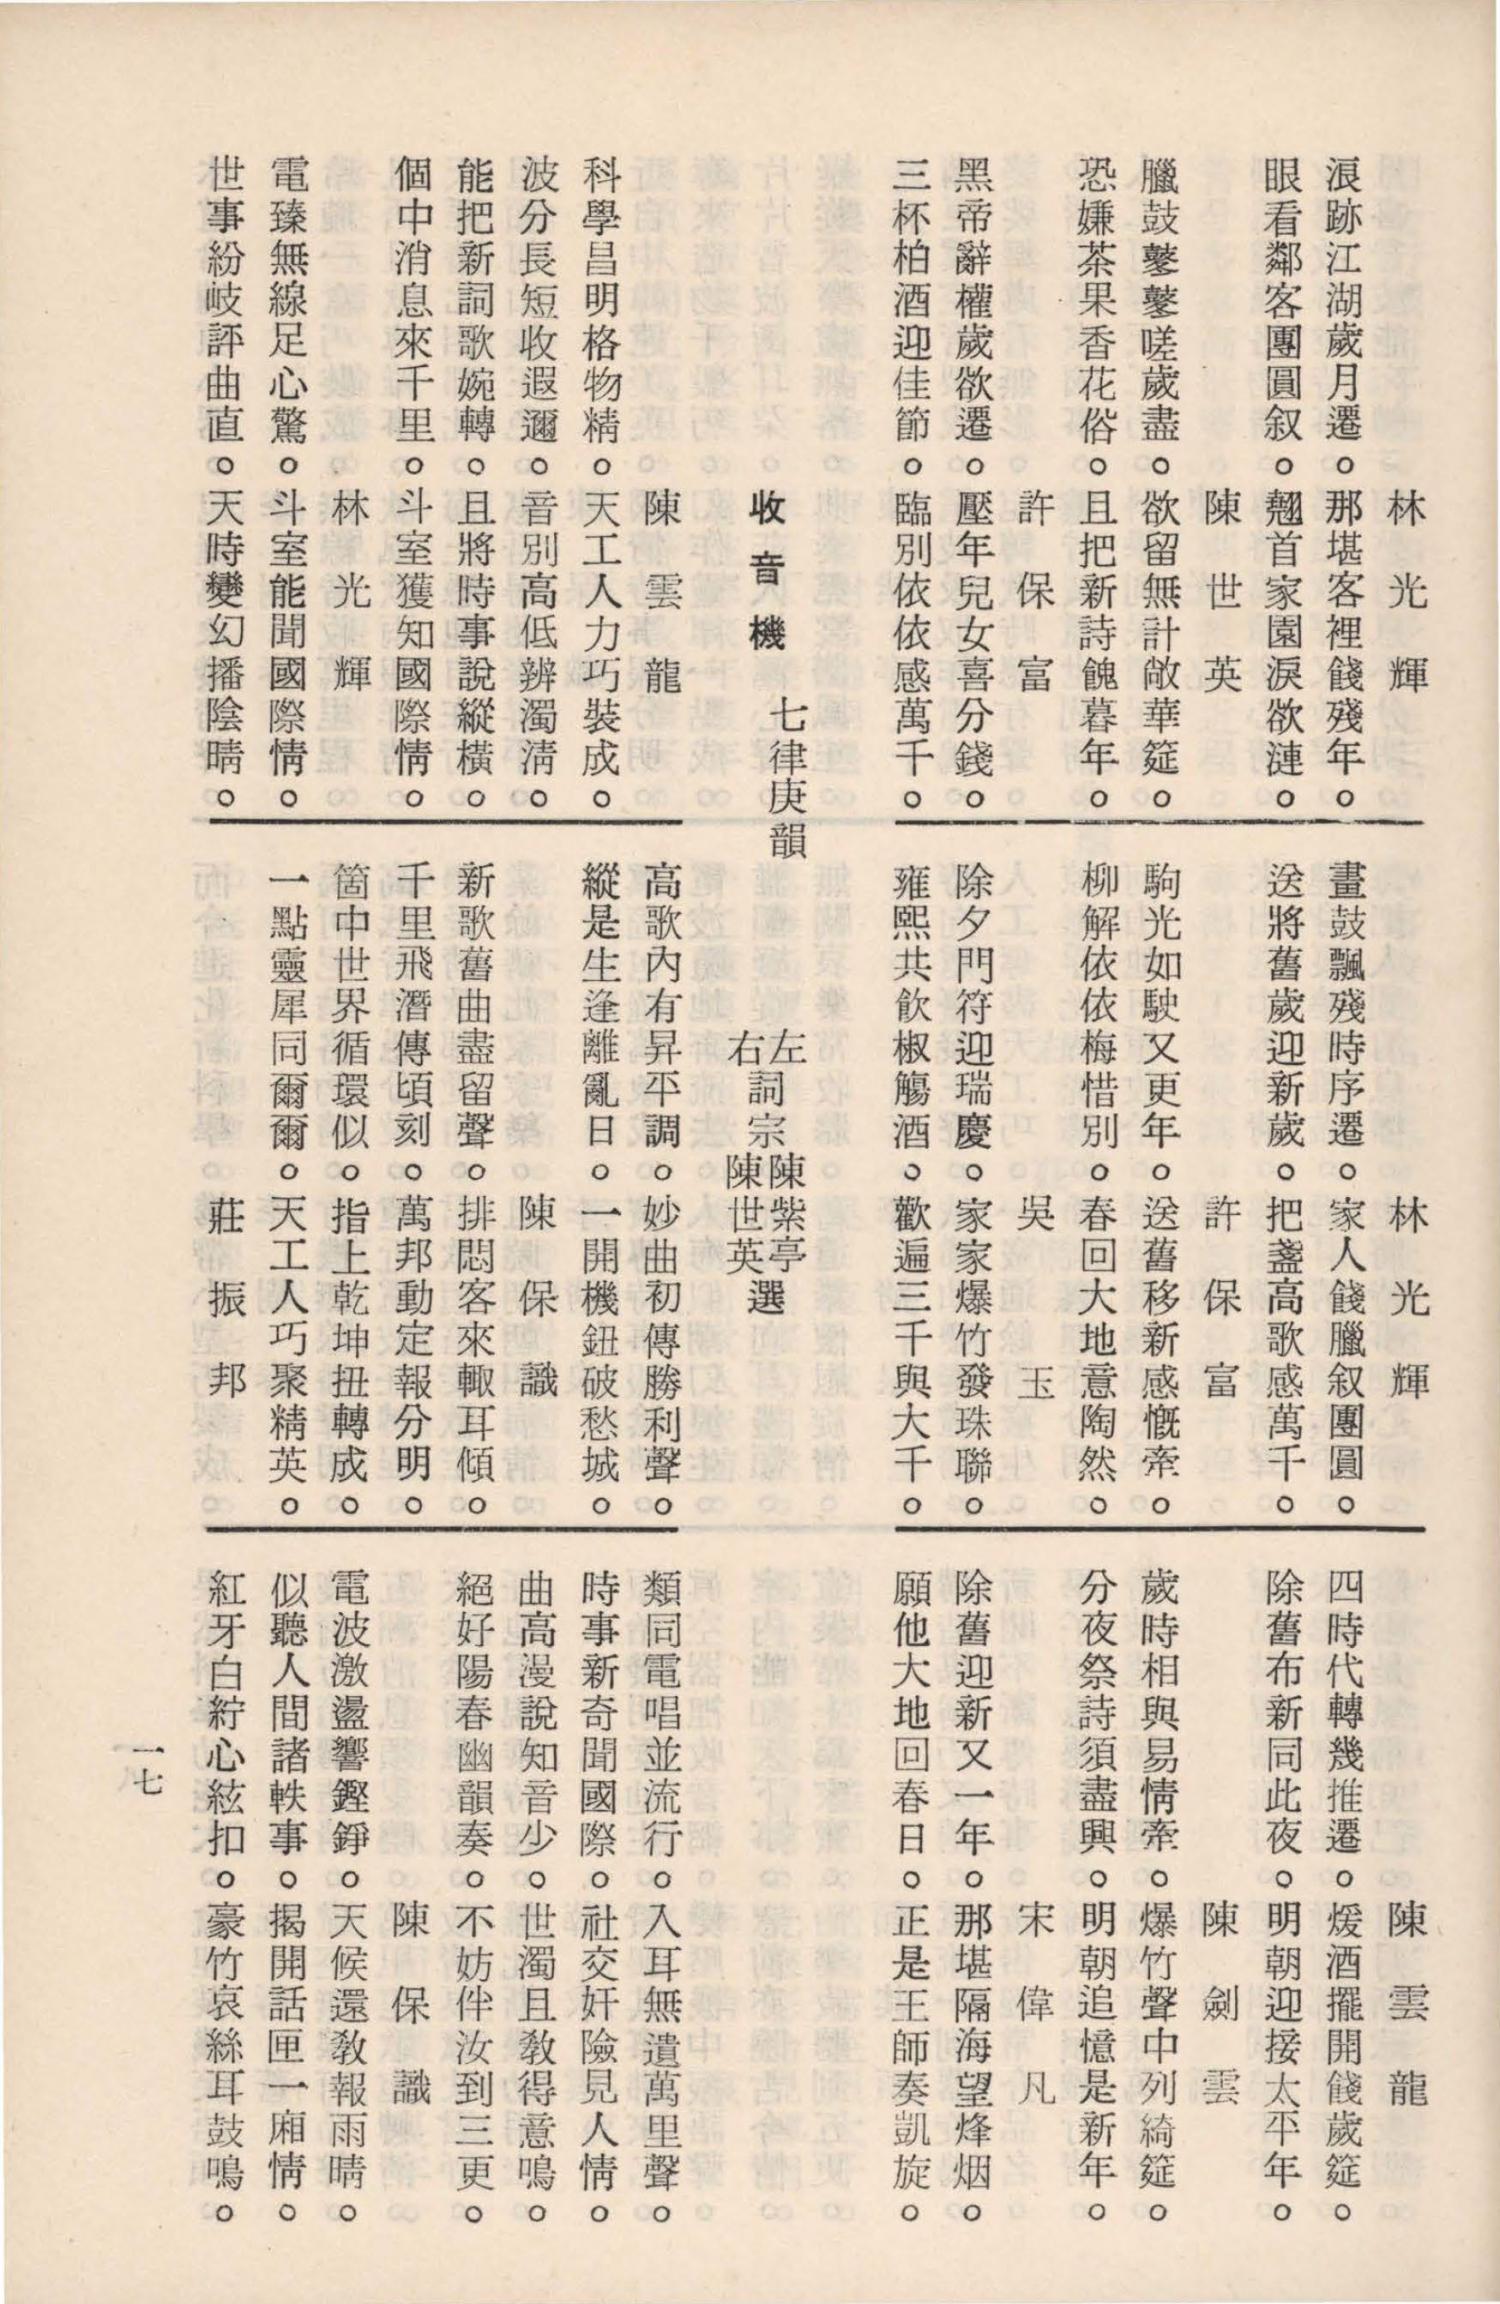 林光輝
浪跡江湖歲月遷。那堪客裡餞殘年。
眼看鄰客團圓叙。翹首家園淚欲漣。
陳世英
臘鼓鼕鼕嗟歲盡。欲留無計敞華筵。
恐嫌茶果香花俗。且把新詩餽暮年。
許保富
黑帝辭權歲欲遷。壓年兒女喜分錢。
三杯柏酒迎佳節。臨別依依感萬千。
林光輝
畫鼓飄殘時序遷。家人餞臘叙團圓。
送將舊歲迎新歲。把盞高歌感萬千。
許保富
駒光如駛又更年。送舊移新感慨牽。
柳解依依梅惜別。春回大地意陶然。
吳玉
除夕門符迎瑞慶。家家爆竹發珠聯。
雍熙共飲椒觴酒。歡遍三千與大千。
陳雲龍
四時代轉幾推遷。煖酒擺開餞歲筵。
除舊布新同此夜。明朝迎接太平年。
陳劍雲
歲時相與易情牽。爆竹聲中列綺筵。
分夜祭詩須盡興。明朝追憶是新年。
宋偉凡
除舊迎新又一年。那堪隔海望烽烟。
願他大地回春日。正是王師奏凱旋。
收音機 七律庚韻
左詞宗陳紫亭選
右詞宗陳世英選
陳雲龍
科學昌明格物精。天工人力巧裝成。
波分長短收遐邇。音別高低辨濁清。
能把新詞歌婉轉。且將時事說縱橫。
個中消息來千里。斗室獲知國際情。
林光輝
電臻無線足心驚。斗室能聞國際情。
世事紛岐評曲直。天時變幻播陰晴。
高歌內有昇平調。妙曲初傳勝利聲。
縱是生逢離亂日。一開機鈕破愁城。
陳保識
新歌舊曲盡留聲。排悶客來輙耳傾。
千里飛潛傳頃刻。萬邦動定報分明。
箇中世界循環似。指上乾坤扭轉成。
一點靈犀同爾爾。天工人巧聚精英。
莊振邦
類同電唱並流行。入耳無遺萬里聲。
時事新奇聞國際。社交奸險見人情。
曲高漫說知音少。世濁且教得意鳴。
絕好陽春幽韻奏。不妨伴汝到三更。
陳保識
電波激盪響鏗錚。天候還教報雨晴。
似聽人間諸軼事。揭開話匣一廂情。
紅牙白紵心絃扣。豪竹哀絲耳鼓鳴。
一七